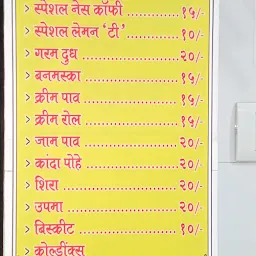 > स्पेशल नेस कॉफी ................ १५/-
> स्पेशल लेमन ‘टी’ ............... १०/-
> गरम दुध ........................ २०/-
> बनमस्का ........................ १५/-
> क्रीम पाव ....................... १५/-
> क्रीम रोल ....................... १५/-
> जाम पाव ....................... २०/-
> कांदा पोहे ...................... २०/-
> शिरा ............................ २०/-
> उपमा .......................... २०/-
> बिस्कीट ........................ १०/-
> कोल्डींक्स